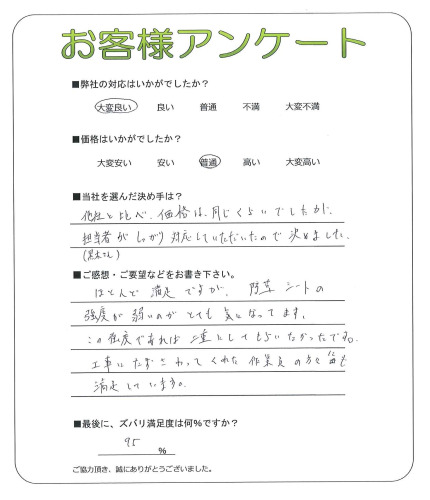 お客様アンケート
■弊社の対応はいかがでしたか？
大変良い 良い 普通 不満 大変不満
■価格はいかがでしたか？
大変安い 安い 普通 高い 大変高い
■当社を選んだ決め手は？
他社と比べ、価格は、同じくらいでしたが、
担当者がしっかり対応していただいたので決めました。
(黒木さん)
■ご感想・ご要望などをお書き下さい。
ほとんど満足ですが、防草シートの
強度が弱いのがとても気になってます。
この強度であれば二重にしてもらいたかったです。
工事にたずさわってくれた作業員の方々
満足しています。
■最後に、ズバリ満足度は何%ですか？
95 %
ご協力頂き、誠にありがとうございました。